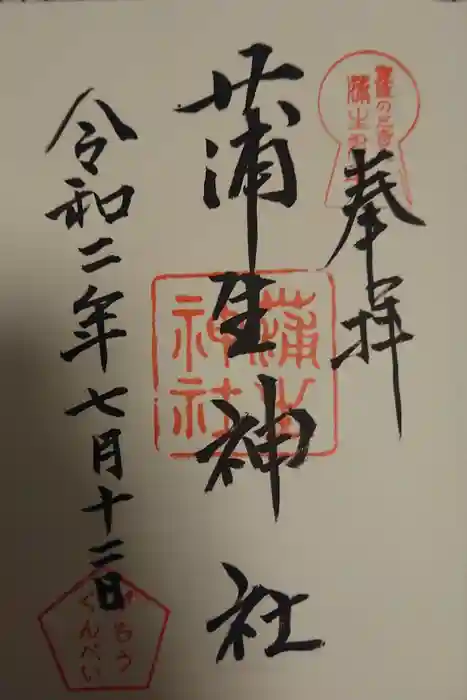 奉拝
蒲生神社
蒲生神社
令和二年七月十二日
がもう
くんぺい